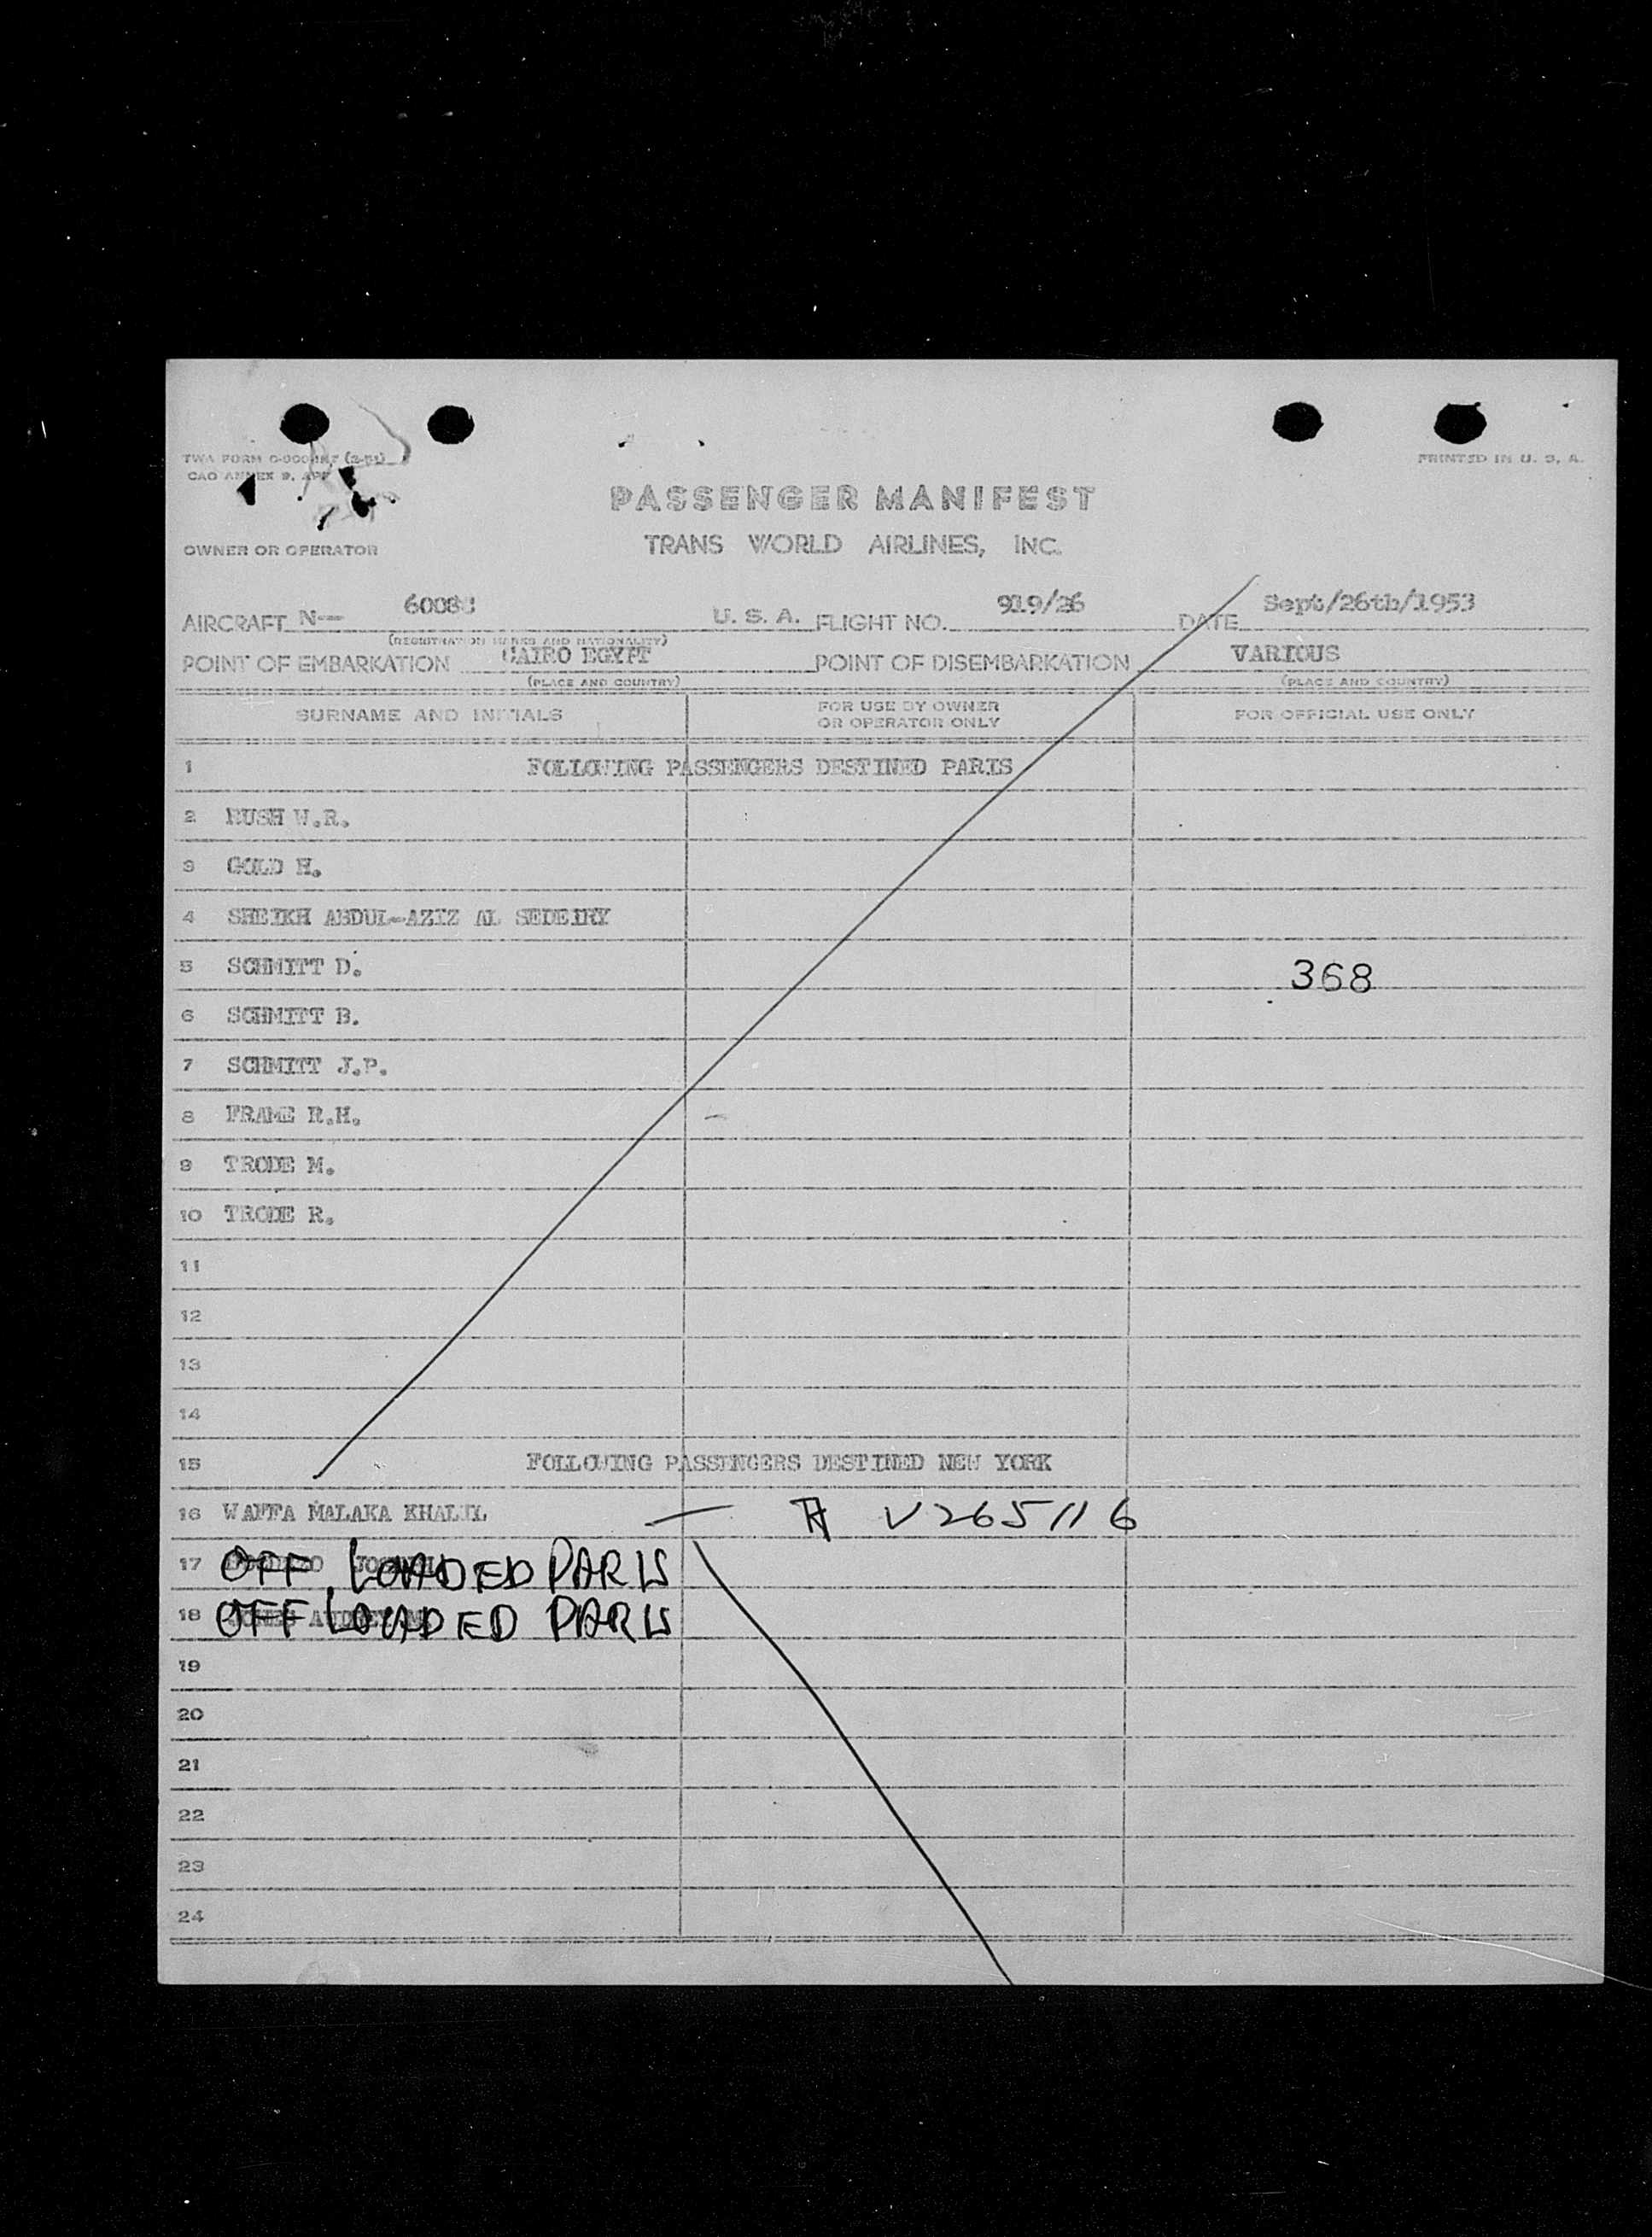 TWA FORM
PRINTED IN U. S. A.
PASSENGER MANIFEST
OWNER OR OPERATOR TRANS WORLD AIRLINES, INC.
AIRCRAFT N— U. S. A. FLIGHT NO. 919/26 DATE Sept/26th/1953
(REGISTRATION MARKS AND NATIONALITY)
POINT OF EMBARKATION CAIRO EGYPT POINT OF DISEMBARKATION VARIOUS
(PLACE AND COUNTRY) (PLACE AND COUNTRY)
SURNAME AND INITIALS FOR USE BY OWNER OR OPERATOR ONLY FOR OFFICIAL USE ONLY
1 FOLLOWING PASSENGERS DESTINED PARIS
2 RUSH W.R.
3 GOLD H.
4 SHEIKH ABDUL-AZIZ AL SEDEIRY
5 SCHMITT D. 368
6 SCHMITT B.
7 SCHMITT J.P.
8 FRAME R.H.
9 TRODE M.
10 TRODE R.
11
12
13
14
15 FOLLOWING PASSENGERS DESTINED NEW YORK
16 WAFFA MALAKA KHALIL — A V265116
17 OFF LOADED PARIS
18 OFF LOADED PARIS
19
20
21
22
23
24